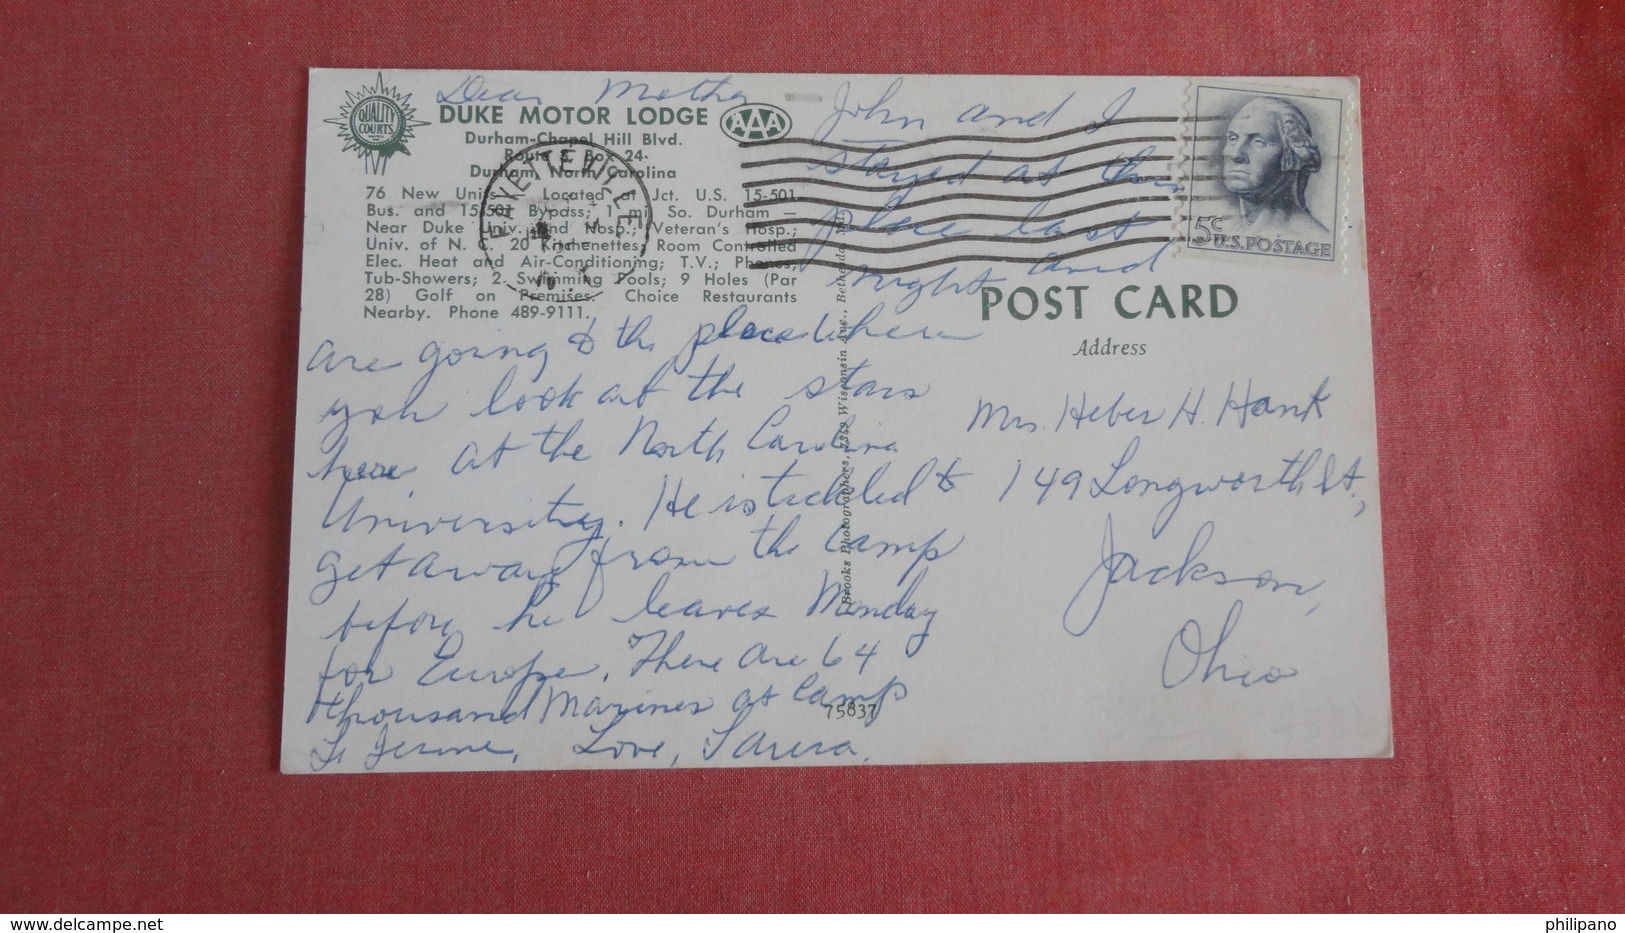 Dear Mother
QUALITY COURTS
DUKE MOTOR LODGE
AAA
Durham-Chapel Hill Blvd.
Route 3, Box 24.
Durham, North Carolina
76 New Units — Located at Jct. U.S. 15-501
Bus. and 15-501 Bypass; 1 mi. So. Durham —
Near Duke Univ. and Hosp.; Veteran's Hosp.;
Univ. of N. C. 20 Kitchenettes; Room Controlled
Elec. Heat and Air-Conditioning; T.V.; Phones;
Tub-Showers; 2 Swimming Pools; 9 Holes (Par
28) Golf on Premises. Choice Restaurants
Nearby. Phone 489-9111.
John and I
stayed at this
place last
night and
are going to the place where
you look at the stars
here at the North Carolina
University. He is tickled to
get away from the Camp
before he leaves Monday
for Europe. There are 64
thousand Marines at Camp
Le Jeune. Love,
FAYETTEVILLE
5c U.S. POSTAGE
POST CARD
Address
Mrs. Heber H. Hank
149 Longworth St.,
Jackson,
Ohio
Brooks Photographers, 7349 Wisconsin Ave., Bethesda, Md.
75837
philipano